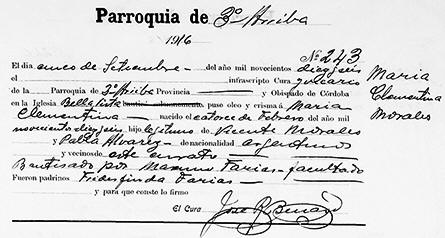 Parroquia de 3º Arriba
1916
Nº 243
El dia once de Setiembre del año mil novecientos dieziseis
el infrascripto Cura Vicario
de la Parroquia de 3º Arriba Provincia y Obispado de Córdoba
en la Iglesia Bella Vista puso oleo y crisma á Maria
Clementina nacido el catorce de Febrero del año mil
novecientos dieziseis hijo legitimo de Vicente Morales
y Pabla Alvarez de nacionalidad argentinos
y vecinos de este curato
Bautisado por Maximo Farias facultado
Fueron padrinos Farias.
y para que conste lo firmo
El Cura Jose
Maria
Clementina
Morales